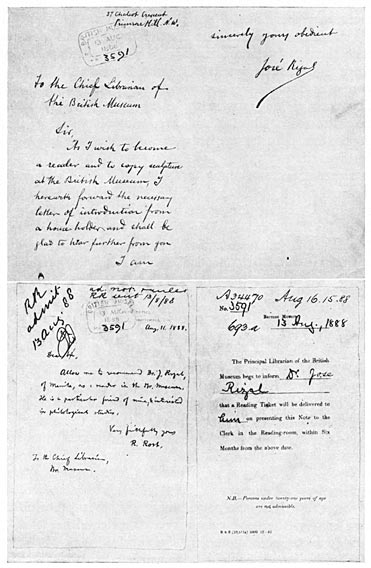 37 Chalcot Crescent
Primrose Hill, N.W.
13 AUG
3591
To the Chief Librarian of
the British Museum
Sir,
As I wish to become
a reader and to copy sculpture
at the British Museum, I
herewith forward the necessary
letter of introduction from
a householder and shall be
glad to hear further from you
I am
sincerely yours obedient
José Rizal
RR
admit
13 Aug 88
RR sent 13/8/88
3591
Aug. 11. 1888.
Dear Sir,
Allow me to recommend Dr. J. Rizal,
of Manila, as a reader in the Br. Museum.
He is a particular friend of mine, interested
in philological studies.
Very faithfully yours
R. Rost.
To the Chief Librarian,
Br. Museum.
A34470 Aug 16.15.88
No. 3591
BRITISH MUSEUM
693a 13 Aug, 1888
The Principal Librarian of the British
Museum begs to inform Dr. Jose
Rizal
that a Reading Ticket will be delivered to
him on presenting this Note to the
Clerk in the Reading-room, within Six
Months from the above date.
N.B.—Persons under twenty-one years of age
are not admissible.